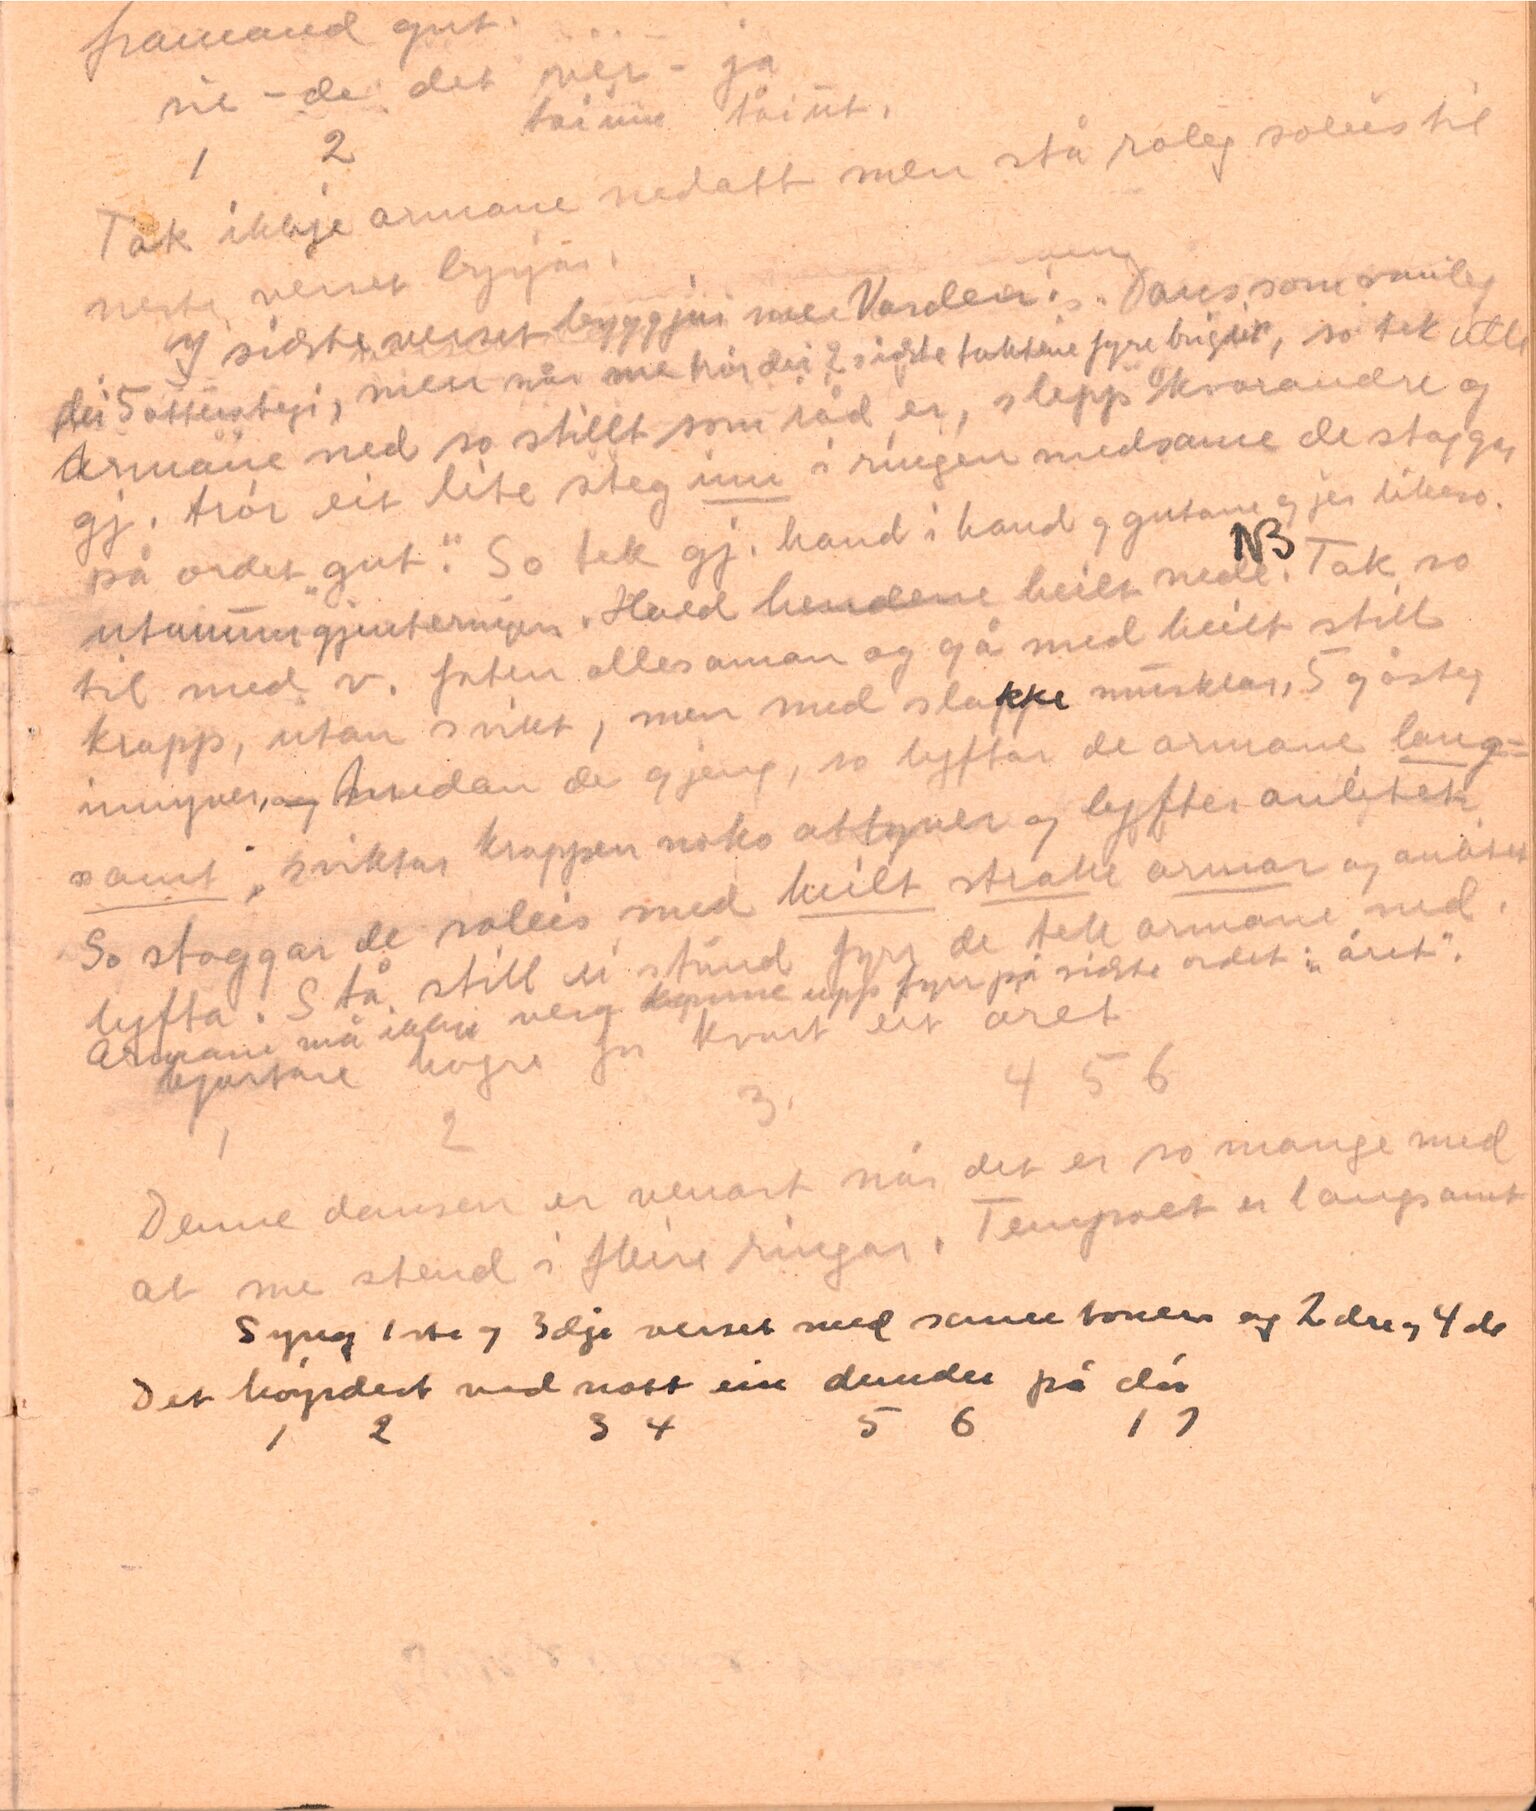 framand gut.
sie - de det vēr - ja
tåinn tåiut.
1 2
Tak ikkje armane nedatt men stå roleg soleis til
neste verset byrjar.
I sidste verset byggjer me Varden: Dans som vanleg
dei 5 attersteg, men når me trør dei 2 sidste taktene fyre bright", so tek alle
Armane ned so stillt som råd er, slepp kvarandre og
gj. trør eit lite steg inn i ringen medsame de stoggar
på ordet "gut". So tek gj. hand i hand og gutane gjer likeso.
utanum gjenteringen. Hald hendene heilt nede. NB Tak so
til med v. foten allesaman og gå med heilt still
kropp, utan svikt, men med slakke musklar, 5 gåsteg
innyver, og medan de gjeng, so lyftar de armane lang=
samt, sviktar kroppen noko attyver og lyfter anletet
So stoggar de soleis med heilt strake armar og anletet
lyfta. Stå still ei stund fyrr de tek armane ned.
Armane må ikkje verg komme upp fyrr på sidste ordet: "året".
hjartare høgre for kvart eit året
1 2 3. 4 5 6
Denne dansen er venast når det er so mange med
at me stend i fleire ringar. Tempoet er langsamt
Syng 1ste og 3dje verset med same tonen og 2dre og 4de
Det høyrdest ved nott ein dunder på dør
1 2 3 4 5 6 1 2